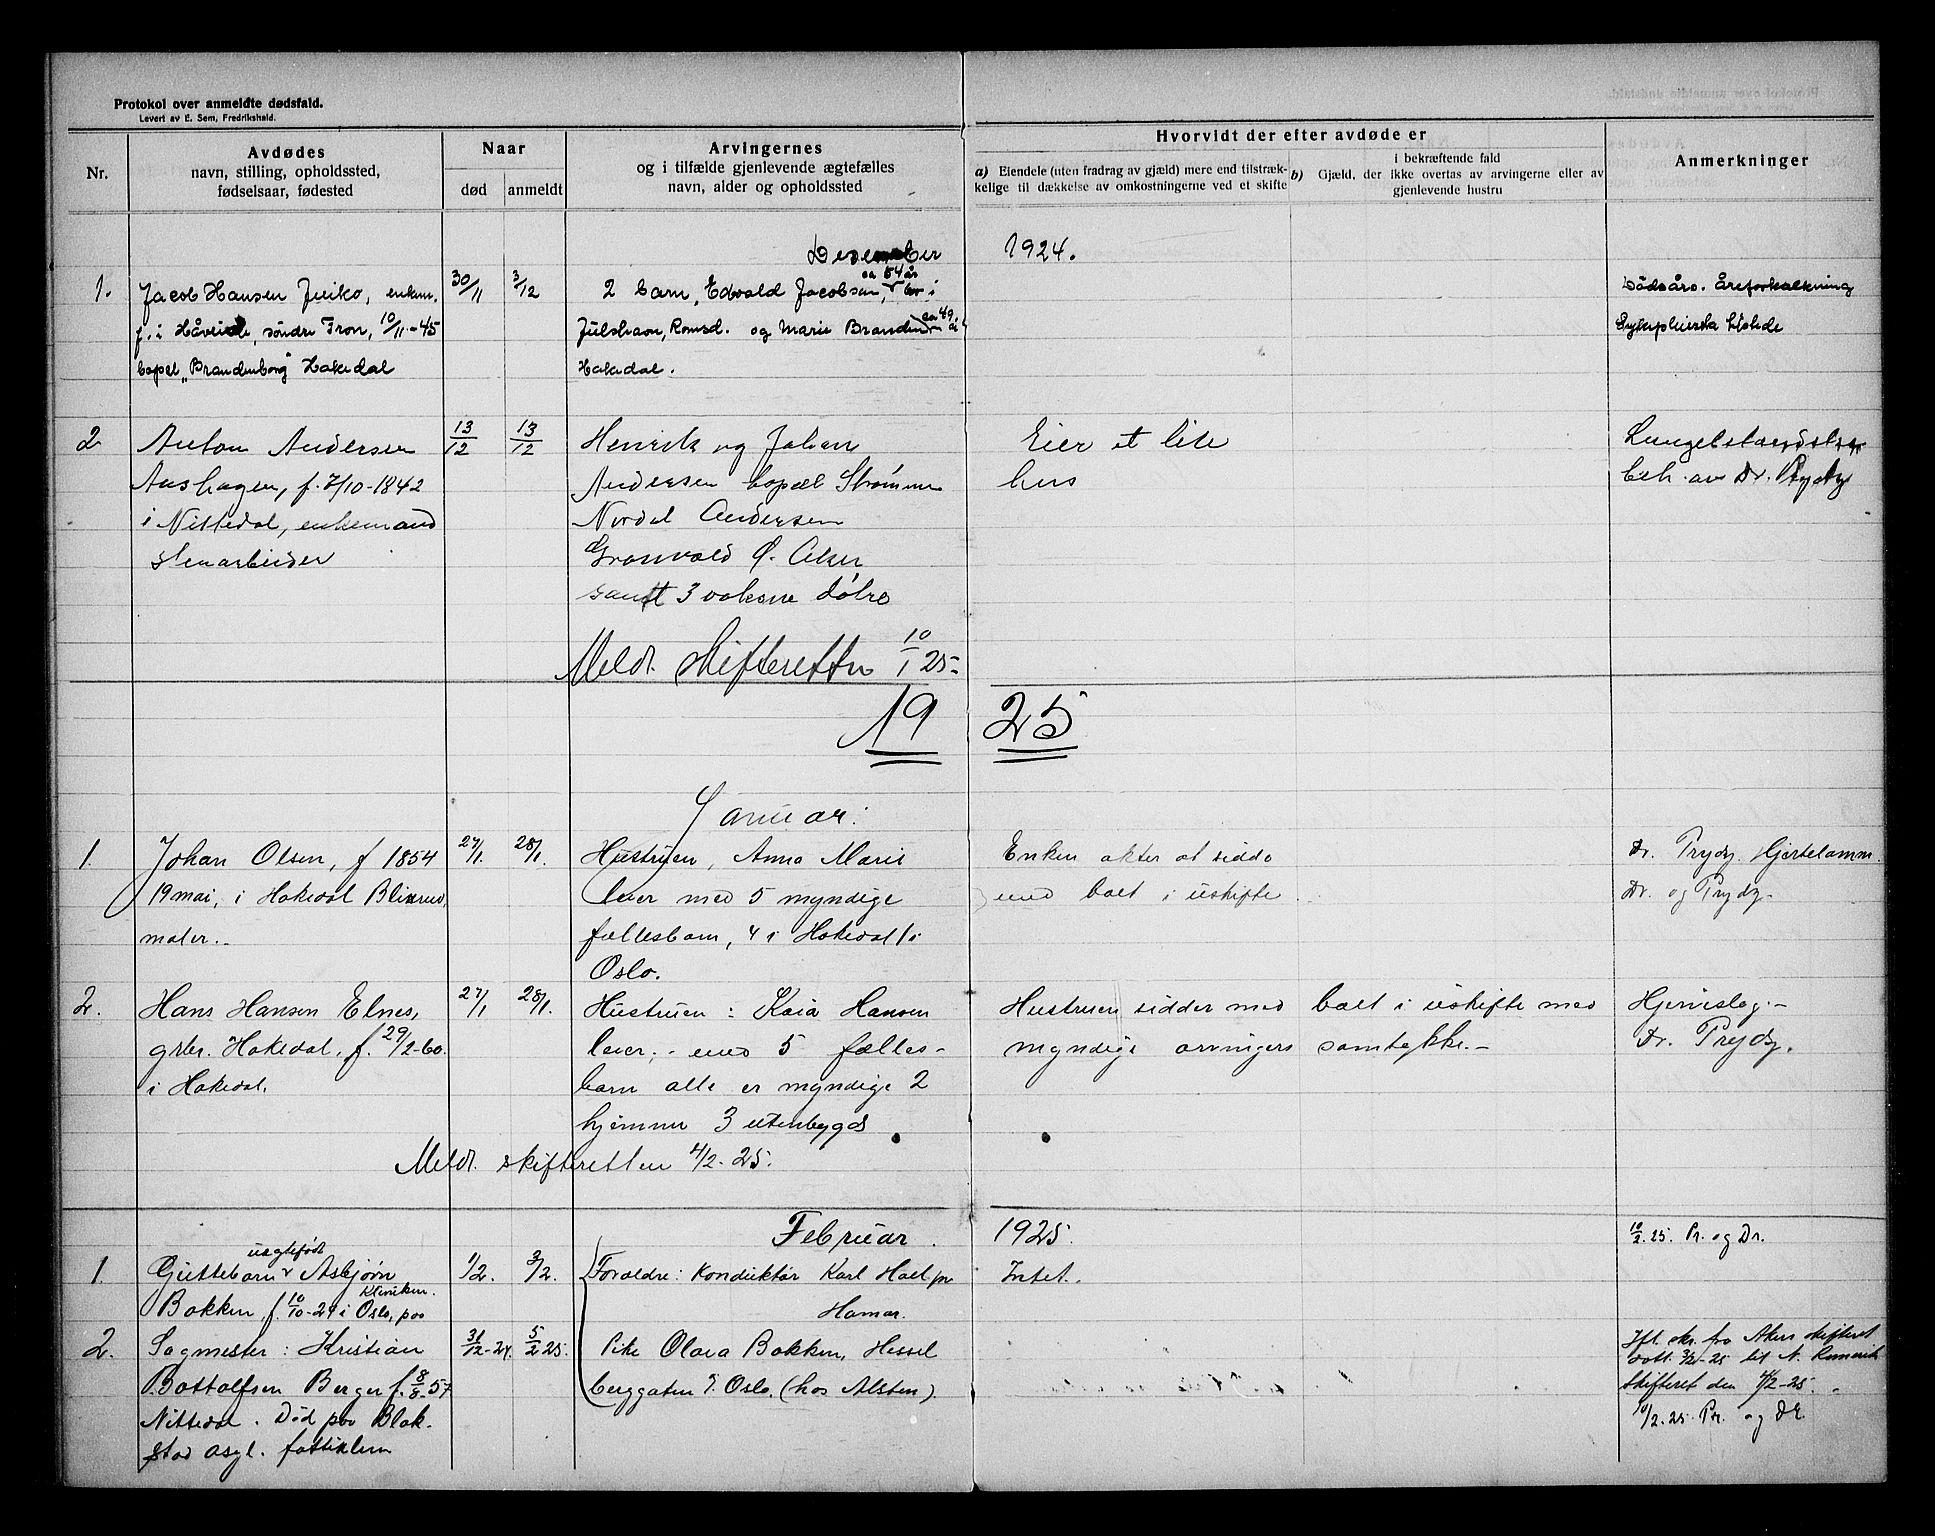 Protokol over anmeldte dødsfald.
Levert av E. Sem, Fredrikshald.
Nr.
Avdødes
navn, stilling, opholdssted,
fødselsaar, fødested
Naar
død
anmeldt
Arvingernes
og i tilfælde gjenlevende ægtefælles
navn, alder og opholdssted
Hvorvidt der efter avdøde er
a) Eiendele (uten fradrag av gjæld) mere end tilstræk-
kelige til dækkelse av omkostningerne ved et skifte
b) Gjæld, der i bekræftende fald
ikke overtas av arvingerne eller av
gjenlevende hustru
Anmerkninger
Desember 1924.
1. Jacob Hansen enkem.
f. i søndre Fron, 10/11-45
bopel "Brandenborg" Hakedal
30/11
3/12
2 barn, Edvald Jacobsen, ca 54 år i
Romsd. og Marie ca 49 år
Hakedal.
Dødsårs. Åreforkalkning
2 Anton Andersen
f. 7/10-1842
i Nittedal, enkemand
stenarbeider
13/12
13/12
Henrik og Johan
Andersen bopæl Strømmen
Nordal Andersen
Grønvold Ø. Aker
samt 3 voksne døtre
Eier et lite
hus
beh. av Dr. Prydz
Meldt skifteretten 10/1 25-
19 25
Januar:
1. Johan Olsen, f 1854
19 mai, i Hakedal
maler.-
27/1.
28/1.
Hustruen, Anna Marie
lever med 5 myndige
fællesbarn, 4 i Hakedal 1 i
Oslo.
Enken akter at sidde
med boet i uskifte
Dr. Prydz. Hjertelamm.
Dr. og Prydz.
2. Hans Hansen Elnes,
grbr. Hakedal. f. 29/2-60.
i Hakedal.
27/1
28/1.
Hustruen: Kaia Hansen
lever; - med 5 fælles-
barn alle er myndige 2
hjemme 3 utenbygds
Hustruen sidder med boet i uskifte med
myndige arvingers samtykke.-
Dr. Prydz.
Meldt skifteretten 4/2-25.
Februar. 1925.
10/2. 25. Pr. og Dr.
1. Guttebarn uegtefødt Asbjørn
Bakken, f. 10/10-24 i Oslo, paa Kliniken.
1/2.
3/2.
Foraldre: Konduktør Karl
Hamar.
Pike Olava Bakken, Hessel
berggaten 7. Oslo. (hos Alsten).
Intet.
2. Sagmester: Kristian
Bottolfsen Berger f. 8/8-57
Nittedal. Død paa Blak-
stad asyl.
31/12-24.
5/2 25.
Ifl. skr. fra Akers skifteret
datt. 3/2-25 til N. Romerike
skifteret den 4/2-25.
10/2.25 Pr. og Dr.